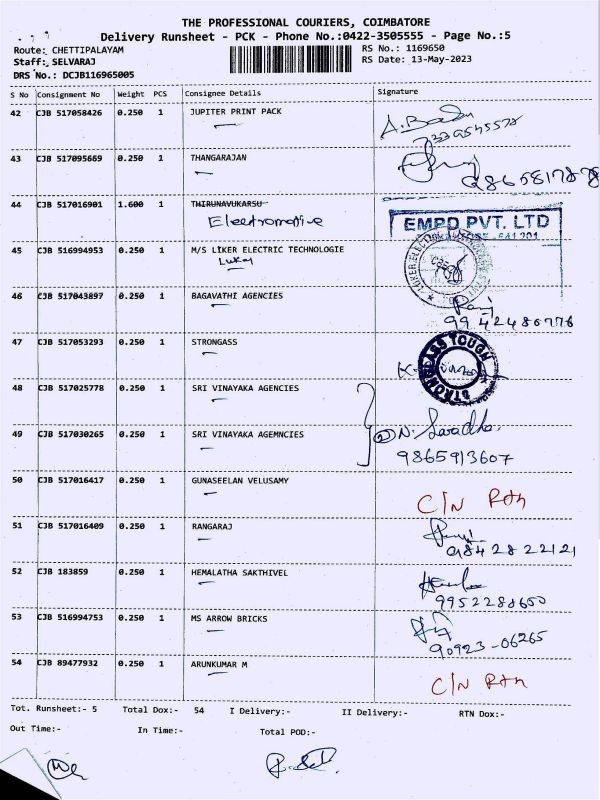 THE PROFESSIONAL COURIERS, COIMBATORE
Delivery Runsheet - PCK - Phone No.:0422-3505555 - Page No.:5
Route: CHETTIPALAYAM RS No.: 1169650
Staff: SELVARAJ RS Date: 13-May-2023
DRS No.: DCJB116965005
S No Consignment No Weight PCS Consignee Details Signature
42 CJB 517058426 0.250 1 JUPITER PRINT PACK
43 CJB 517095669 0.250 1 THANGARAJAN
44 CJB 517016901 1.600 1 THIRUNAVUKARSU
Electromotive
EMPD PVT. LTD
45 CJB 516994953 0.250 1 M/S LIKER ELECTRIC TECHNOLOGIE
46 CJB 517043897 0.250 1 BAGAVATHI AGENCIES
99424 80776
47 CJB 517053293 0.250 1 STRONGASS
48 CJB 517025778 0.250 1 SRI VINAYAKA AGENCIES
49 CJB 517030265 0.250 1 SRI VINAYAKA AGEMNCIES
9865913607
50 CJB 517016417 0.250 1 GUNASEELAN VELUSAMY
C/N RTN
51 CJB 517016409 0.250 1 RANGARAJ
98428 22121
52 CJB 183859 0.250 1 HEMALATHA SAKTHIVEL
9952288650
53 CJB 516994753 0.250 1 MS ARROW BRICKS
90923-06265
54 CJB 89477932 0.250 1 ARUNKUMAR M
C/N RTN
Tot. Runsheet:- 5 Total Dox:- 54 I Delivery:- II Delivery:- RTN Dox:-
Out Time:- In Time:- Total POD:-